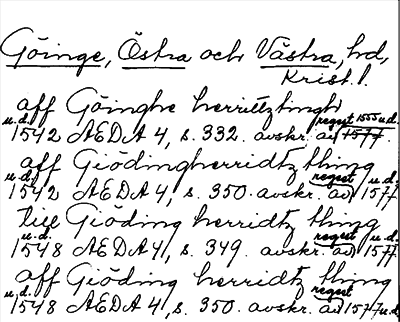 Göinge, Östra och Västra, hd,
Krist. l.
aff Göinghe herrittztingh
u.d. 1542 AEDA 4, s. 332. avskr. av regest 1555 u.d.
aff Giödingherridtz thing
u.d. 1542 AEDA 4, s. 350. avskr. av regest 1577 u.d.
till Giöding herridtz thing
u.d. 1548 AEDA 4, s. 349. avskr. av regest 1577 u.d.
aff Giöding herridtz thing
u.d. 1548 AEDA 4, s. 350. avskr. av regest 1577 u.d.